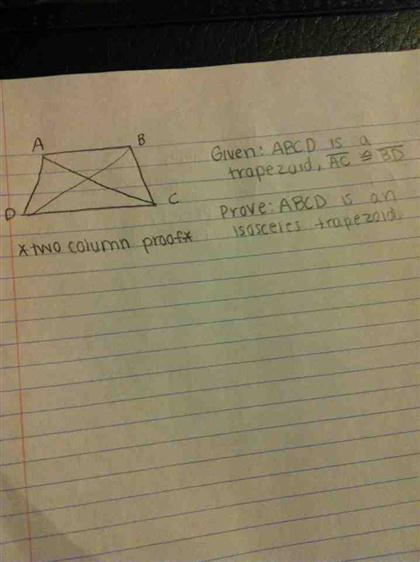 A
B
Given: ABCD is a
trapezoid, AC ≅ BD
D
C
Prove: ABCD is an
isosceles trapezoid.
*two column proof*